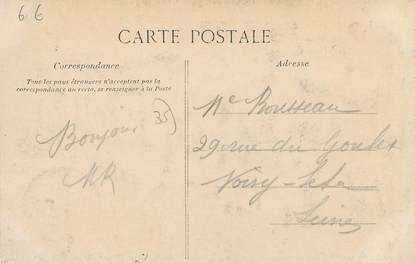 66
CARTE POSTALE
Correspondance
Tous les pays étrangers n'acceptent pas la
correspondance au recto, se renseigner à la Poste
Adresse
35
Bonjour
MR
Me Rousseau
29 rue du Goulet
Noisy-le-Sec
Seine